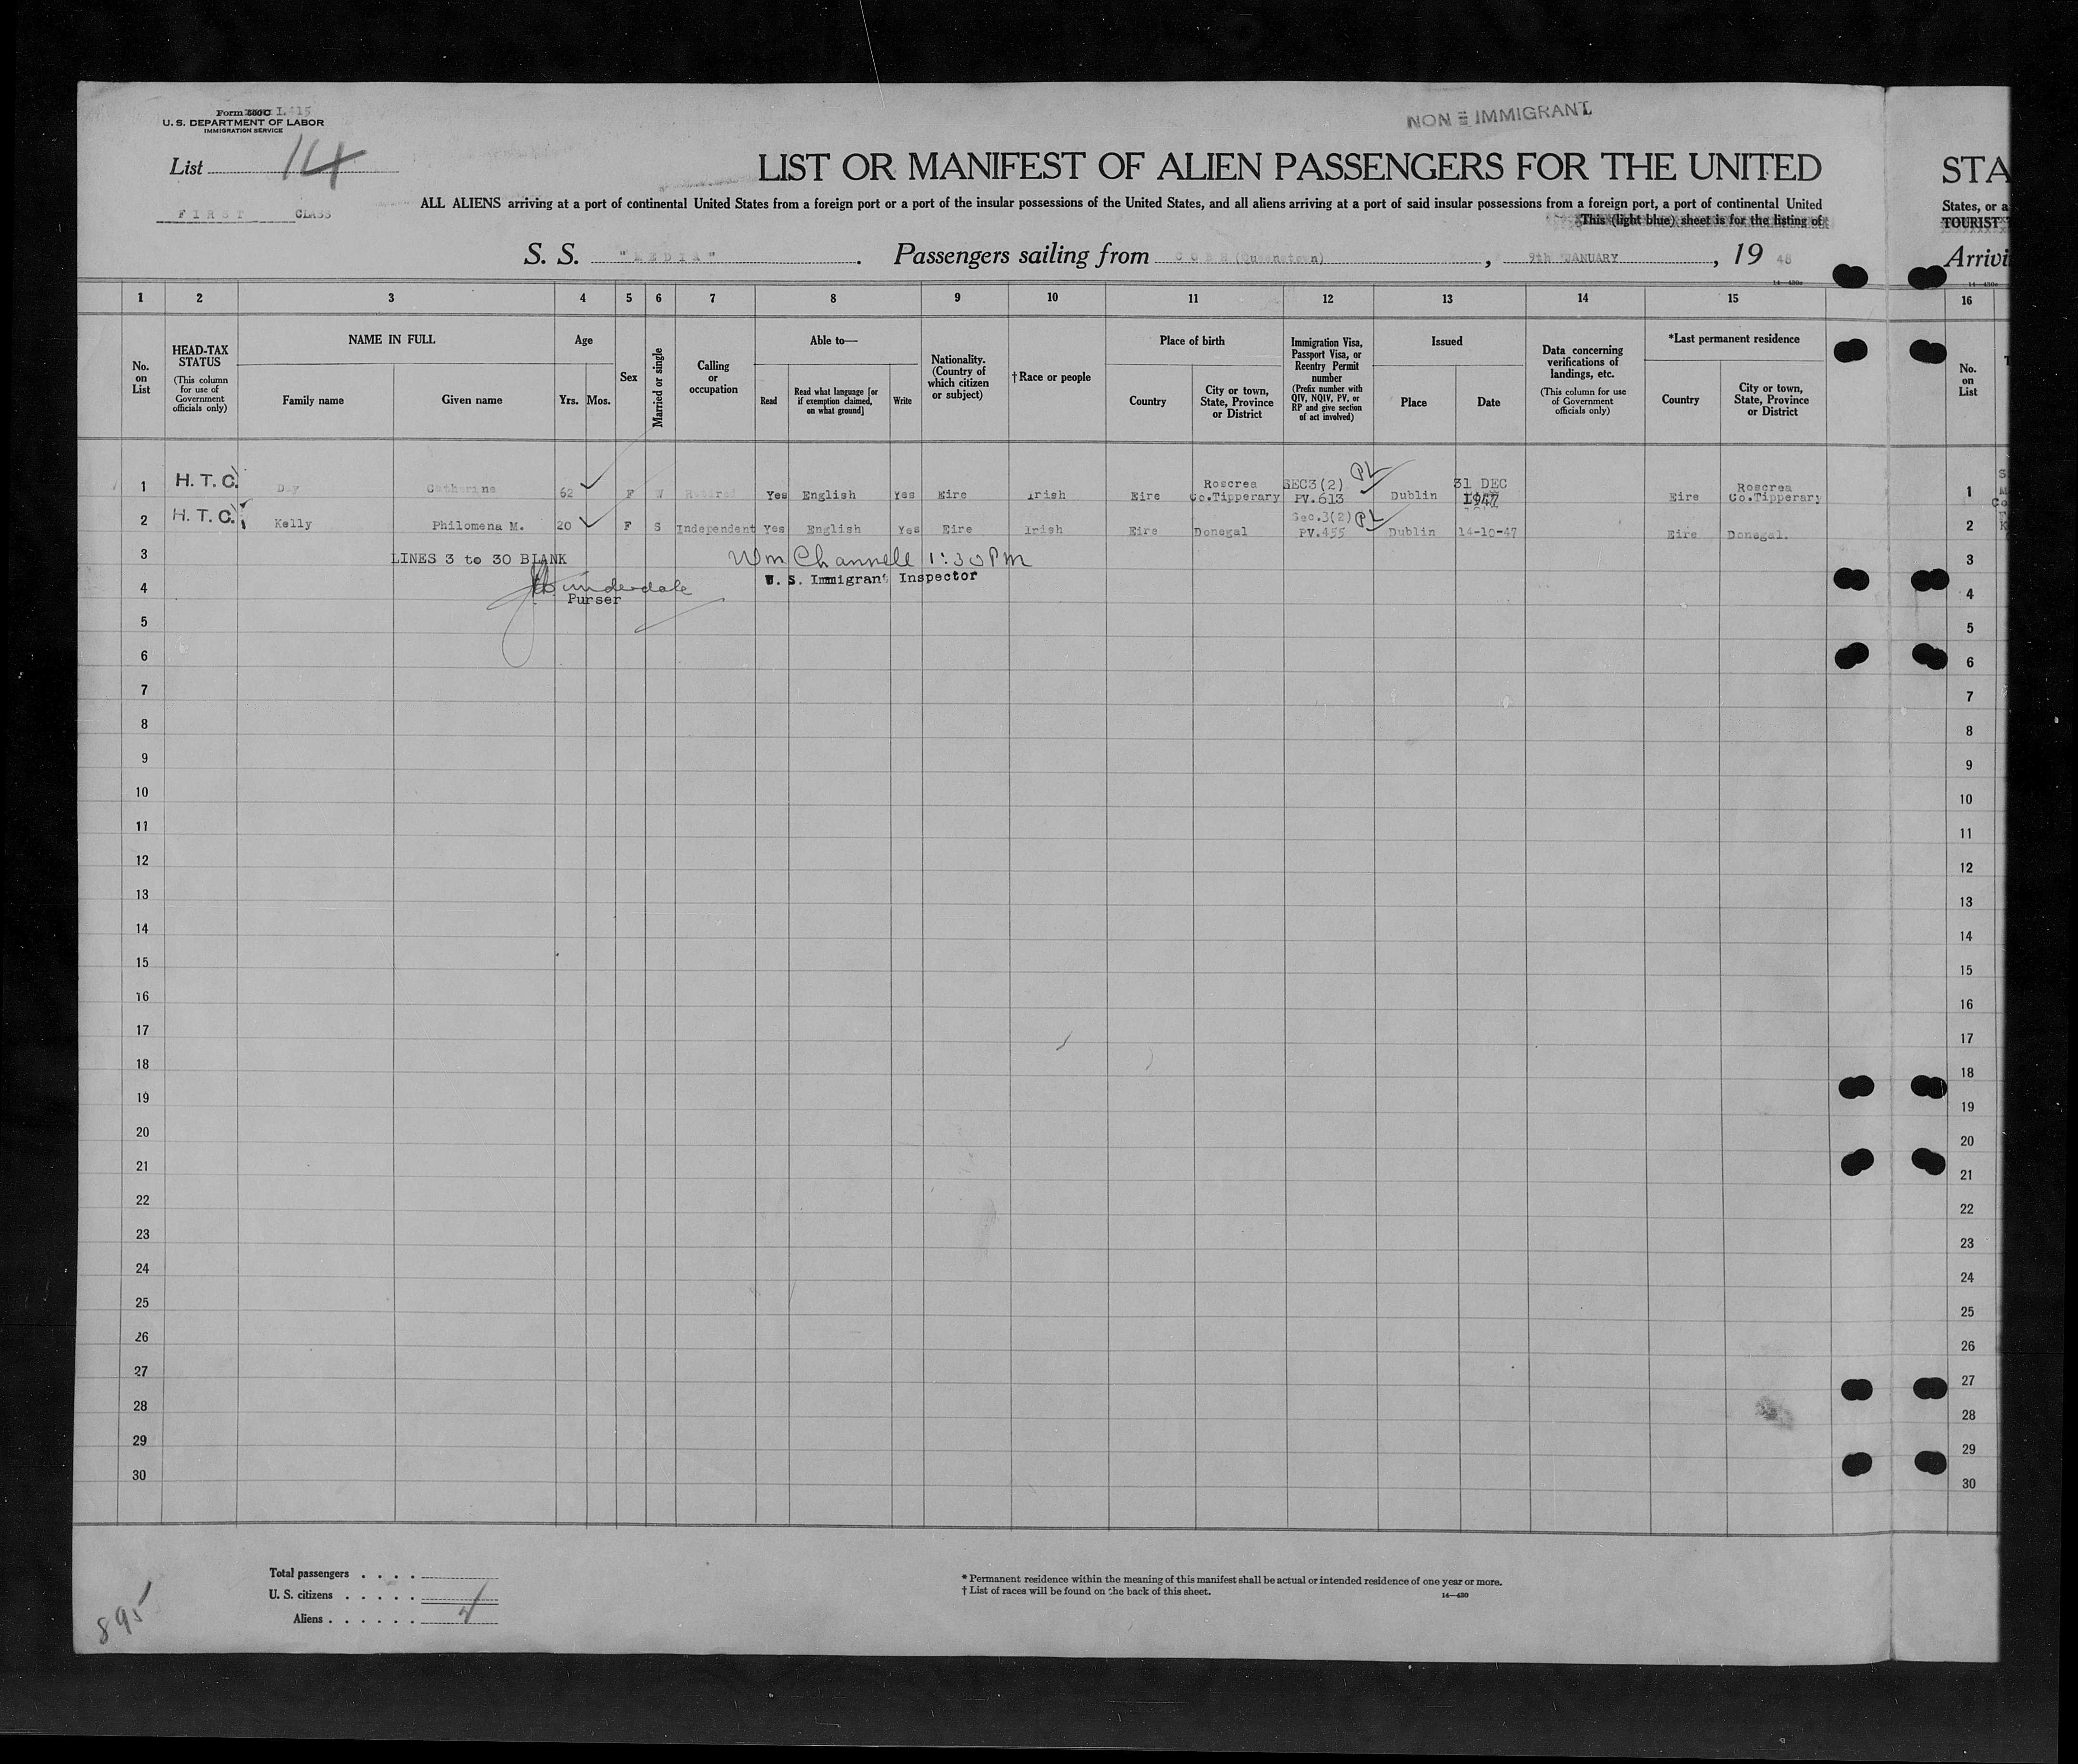 Form 500 C I.415
U. S. DEPARTMENT OF LABOR
IMMIGRATION SERVICE
NON = IMMIGRANT
List 14
LIST OR MANIFEST OF ALIEN PASSENGERS FOR THE UNITED
STA
FIRST CLASS
ALL ALIENS arriving at a port of continental United States from a foreign port or a port of the insular possessions of the United States, and all aliens arriving at a port of said insular possessions from a foreign port, a port of continental United
States, or a
This (light blue) sheet is for the listing of
TOURIST
S. S. "MEDIA". Passengers sailing from COBH (Queenstown), 9th JANUARY, 19 48
Arrivi
1 2 3 4 5 6 7 8 9 10 11 12 13 14 15 16
No. on List
HEAD-TAX STATUS
(This column for use of Government officials only)
NAME IN FULL
Family name Given name
Age
Yrs. Mos.
Sex
Married or single
Calling or occupation
Able to—
Read
Read what language [or if exemption claimed, on what ground]
Write
Nationality. (Country of which citizen or subject)
† Race or people
Place of birth
Country
City or town, State, Province or District
Immigration Visa, Passport Visa, or Reentry Permit number
(Prefix number with QIV, NQIV, PV, or RP and give section of act involved)
Issued
Place Date
Data concerning verifications of landings, etc.
(This column for use of Government officials only)
*Last permanent residence
Country
City or town, State, Province or District
No. on List
1 H. T. C. Day Catherine 62 F W Retired Yes English Yes Eire Irish Eire Roscrea Co.Tipperary SEC3(2) PV.613 PL Dublin 31 DEC 1947 Eire Roscrea Co.Tipperary 1
2 H. T. C. Kelly Philomena M. 20 F S Independent Yes English Yes Eire Irish Eire Donegal Sec.3(2) PV.455 PL Dublin 14-10-47 Eire Donegal. 2
3 LINES 3 to 30 BLANK Wm Channell 1:30 PM 3
U. S. Immigrant Inspector
4 Purser 4
5 5
6 6
7 7
8 8
9 9
10 10
11 11
12 12
13 13
14 14
15 15
16 16
17 17
18 18
19 19
20 20
21 21
22 22
23 23
24 24
25 25
26 26
27 27
28 28
29 29
30 30
Total passengers . . . .
U. S. citizens . . . . .
Aliens . . . . . .
* Permanent residence within the meaning of this manifest shall be actual or intended residence of one year or more.
† List of races will be found on the back of this sheet.
14—430
895